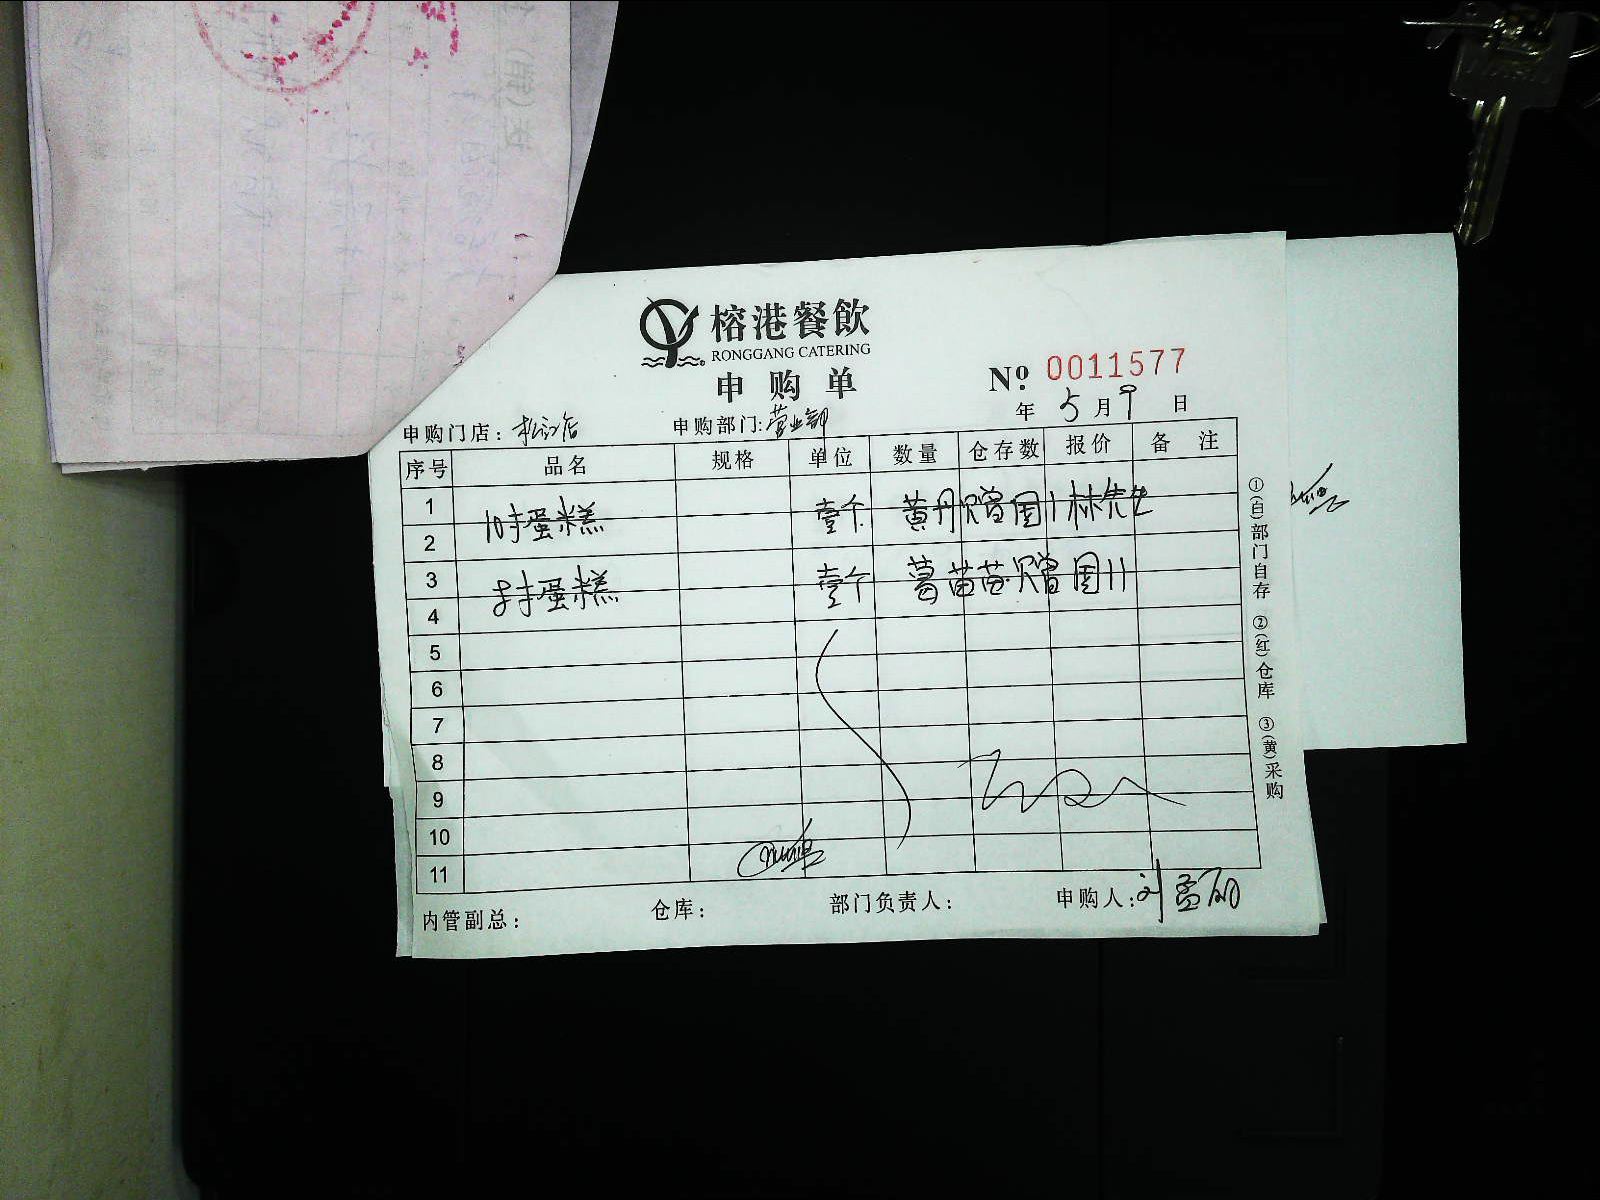 榕港餐飲
RONGGANG CATERING
申购单
Nº 0011577
年 5月9日
申购门店：松江店 申购部门：营业部
序号 品名 规格 单位 数量 仓存数 报价 备注
1
10寸蛋糕 壹个 黄丹赠国川林先生
2
3
8寸蛋糕 壹个 葛苗苗赠国川
4
5
6
7
8
9
10
11
内管副总： 仓库： 部门负责人： 申购人：刘孟丽
①(白)部门自存 ②(红)仓库 ③(黄)采购